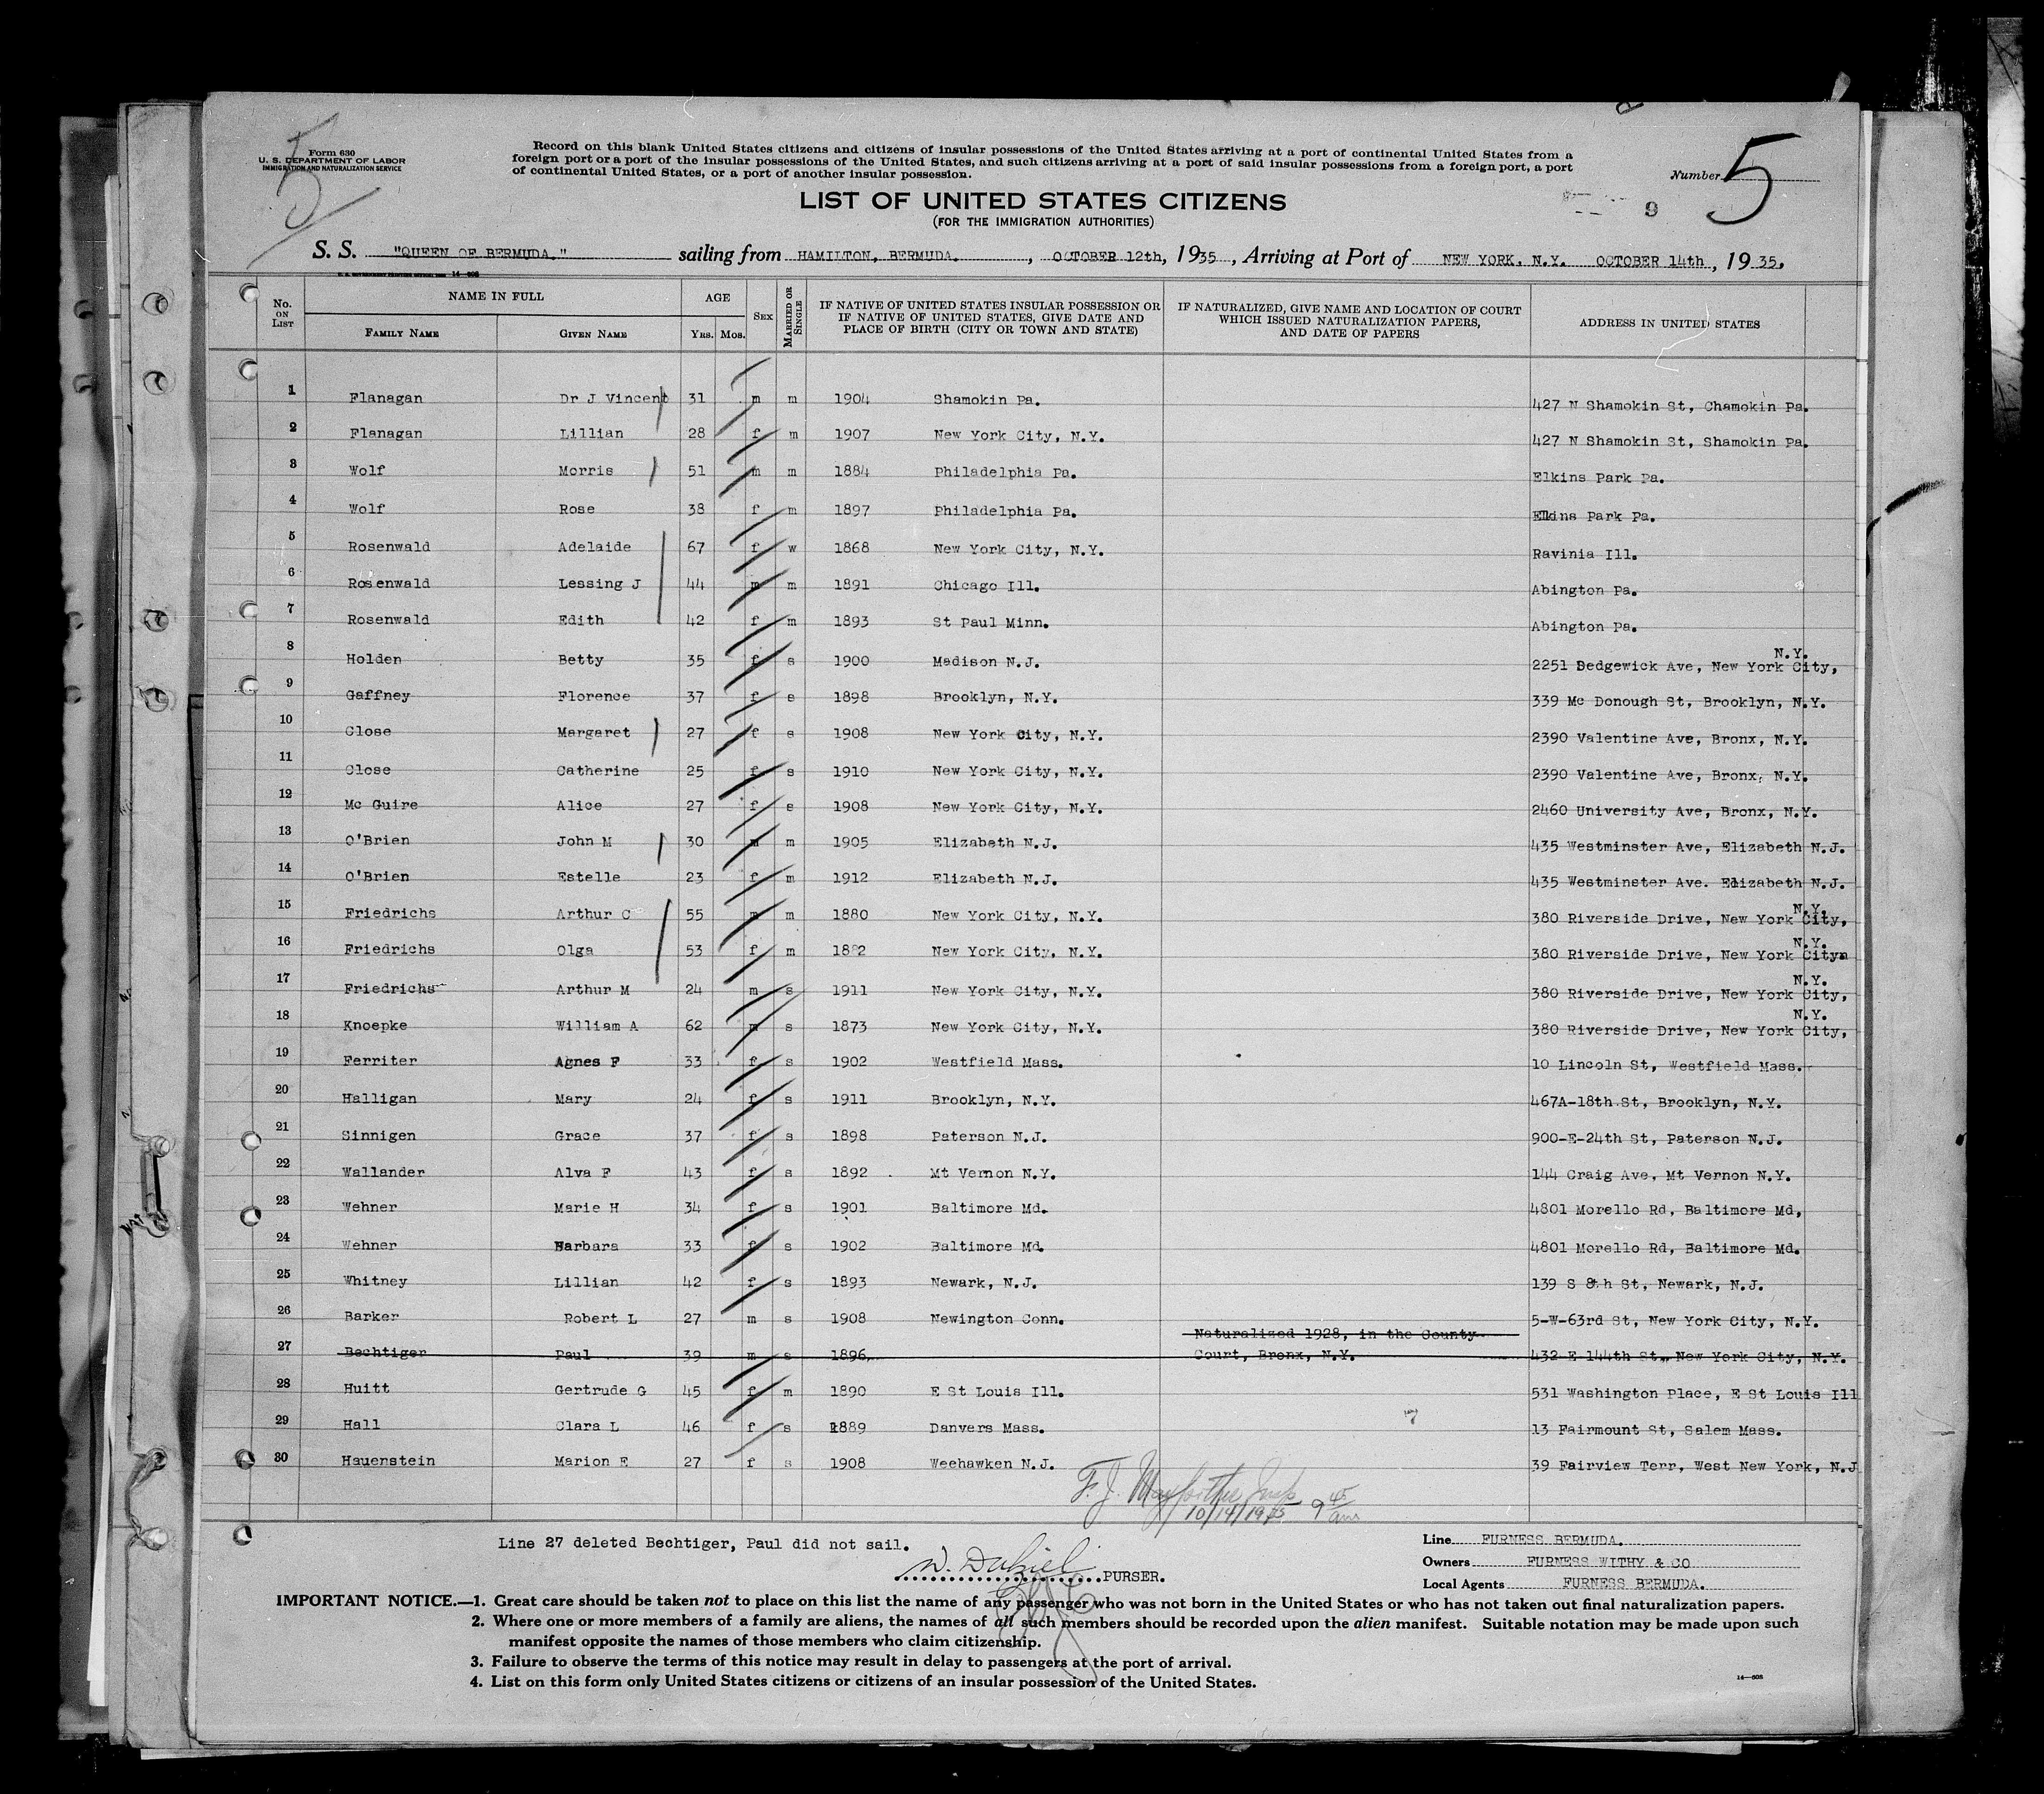 5
Form 630
U. S. DEPARTMENT OF LABOR
IMMIGRATION AND NATURALIZATION SERVICE
Record on this blank United States citizens and citizens of insular possessions of the United States arriving at a port of continental United States from a
foreign port or a port of the insular possessions of the United States, and such citizens arriving at a port of said insular possessions from a foreign port, a port
of continental United States, or a port of another insular possession.
Number 5
LIST OF UNITED STATES CITIZENS
9
(FOR THE IMMIGRATION AUTHORITIES)
S. S. "QUEEN OF BERMUDA." sailing from HAMILTON, BERMUDA. , OCTOBER 12th, 1935, Arriving at Port of NEW YORK, N.Y. OCTOBER 14th, 1935.
No. ON LIST NAME IN FULL FAMILY NAME GIVEN NAME AGE YRS. MOS. SEX MARRIED OR SINGLE IF NATIVE OF UNITED STATES INSULAR POSSESSION OR IF NATIVE OF UNITED STATES, GIVE DATE AND PLACE OF BIRTH (CITY OR TOWN AND STATE) IF NATURALIZED, GIVE NAME AND LOCATION OF COURT WHICH ISSUED NATURALIZATION PAPERS, AND DATE OF PAPERS ADDRESS IN UNITED STATES
1 Flanagan Dr J Vincent 31 m m 1904 Shamokin Pa. 427 N Shamokin St, Chamokin Pa.
2 Flanagan Lillian 28 f m 1907 New York City, N.Y. 427 N Shamokin St, Shamokin Pa.
3 Wolf Morris 51 m m 1884 Philadelphia Pa. Elkins Park Pa.
4 Wolf Rose 38 f m 1897 Philadelphia Pa. Elkins Park Pa.
5 Rosenwald Adelaide 67 f w 1868 New York City, N.Y. Ravinia Ill.
6 Rosenwald Lessing J 44 m m 1891 Chicago Ill. Abington Pa.
7 Rosenwald Edith 42 f m 1893 St Paul Minn. Abington Pa.
8 Holden Betty 35 f s 1900 Madison N.J. 2251 Sedgewick Ave, New York City, N.Y.
9 Gaffney Florence 37 f s 1898 Brooklyn, N.Y. 339 Mc Donough St, Brooklyn, N.Y.
10 Close Margaret 27 f s 1908 New York City, N.Y. 2390 Valentine Ave, Bronx, N.Y.
11 Close Catherine 25 f s 1910 New York City, N.Y. 2390 Valentine Ave, Bronx, N.Y.
12 Mc Guire Alice 27 f s 1908 New York City, N.Y. 2460 University Ave, Bronx, N.Y.
13 O'Brien John M 30 m m 1905 Elizabeth N.J. 435 Westminster Ave, Elizabeth N.J.
14 O'Brien Estelle 23 f m 1912 Elizabeth N.J. 435 Westminster Ave. Elizabeth N.J.
15 Friedrichs Arthur C 55 m m 1880 New York City, N.Y. 380 Riverside Drive, New York City, N.Y.
16 Friedrichs Olga 53 f m 1882 New York City, N.Y. 380 Riverside Drive, New York City, N.Y.
17 Friedrichs Arthur M 24 m s 1911 New York City, N.Y. 380 Riverside Drive, New York City, N.Y.
18 Knoepke William A 62 m s 1873 New York City, N.Y. 380 Riverside Drive, New York City, N.Y.
19 Ferriter Agnes F 33 f s 1902 Westfield Mass. 10 Lincoln St, Westfield Mass.
20 Halligan Mary 24 f s 1911 Brooklyn, N.Y. 467A-18th St, Brooklyn, N.Y.
21 Sinnigen Grace 37 f s 1898 Paterson N.J. 900-E-24th St, Paterson N.J.
22 Wallander Alva F 43 f s 1892 Mt Vernon N.Y. 144 Craig Ave, Mt Vernon N.Y.
23 Wehner Marie H 34 f s 1901 Baltimore Md. 4801 Morello Rd, Baltimore Md,
24 Wehner Barbara 33 f s 1902 Baltimore Md. 4801 Morello Rd, Baltimore Md.
25 Whitney Lillian 42 f s 1893 Newark, N.J. 139 S 8th St, Newark, N.J.
26 Barker Robert L 27 m s 1908 Newington Conn. 5-W-63rd St, New York City, N.Y.
27 Bechtiger Paul 39 m s 1896 Naturalized 1928, in the County Court, Bronx, N.Y. 432 E 144th St, New York City, N.Y.
28 Huitt Gertrude G 45 f m 1890 E St Louis Ill. 531 Washington Place, E St Louis Ill
29 Hall Clara L 46 f s 1889 Danvers Mass. 13 Fairmount St, Salem Mass.
30 Hauenstein Marion E 27 f s 1908 Weehawken N.J. 39 Fairview Terr, West New York, N.J
10/14/1935 9 45 am
Line 27 deleted Bechtiger, Paul did not sail.
PURSER.
Line FURNESS BERMUDA.
Owners FURNESS WITHY & CO
Local Agents FURNESS BERMUDA.
IMPORTANT NOTICE.—1. Great care should be taken not to place on this list the name of any passenger who was not born in the United States or who has not taken out final naturalization papers.
2. Where one or more members of a family are aliens, the names of all such members should be recorded upon the alien manifest. Suitable notation may be made upon such
manifest opposite the names of those members who claim citizenship.
3. Failure to observe the terms of this notice may result in delay to passengers at the port of arrival.
4. List on this form only United States citizens or citizens of an insular possession of the United States.
14—508